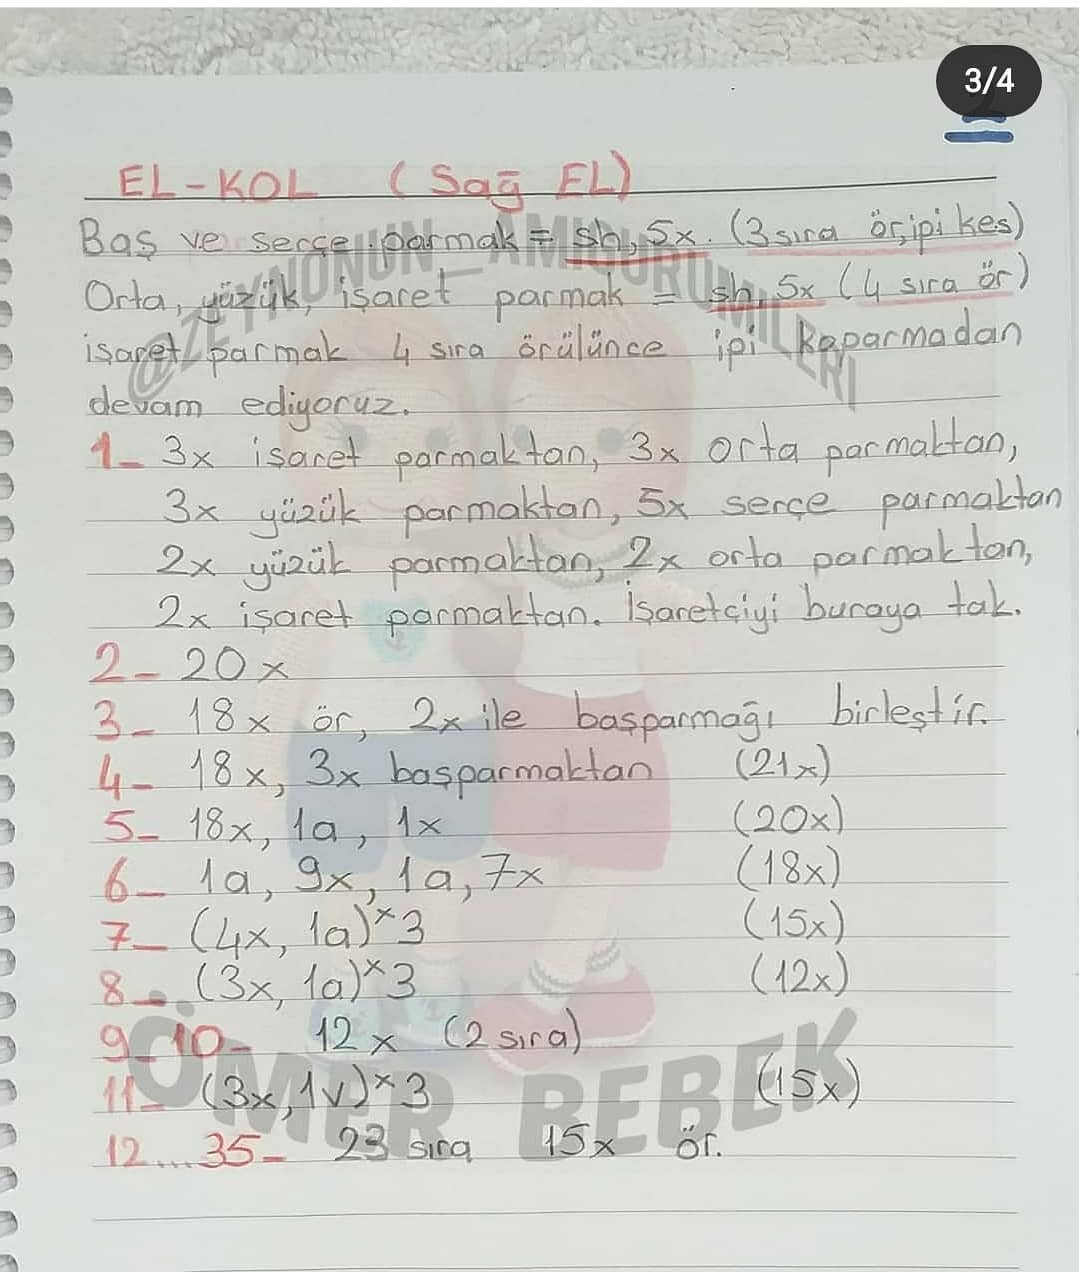 3/4
EL-KOL (Sağ EL)
Baş ve serçe parmak = sh, 5x. (3 sıra ör, ipi kes)
Orta, yüzük, işaret parmak = sh, 5x (4 sıra ör)
işaret parmak 4 sıra örülünce ipi koparmadan
devam ediyoruz.
1- 3x işaret parmaktan, 3x orta parmaktan,
3x yüzük parmaktan, 5x serçe parmaktan
2x yüzük parmaktan, 2x orta parmaktan,
2x işaret parmaktan. İşaretçiyi buraya tak.
2- 20x
3- 18x ör, 2x ile başparmağı birleştir.
4- 18x, 3x başparmaktan (21x)
5- 18x, 1a, 1x (20x)
6- 1a, 9x, 1a, 7x (18x)
7- (4x, 1a)*3 (15x)
8- (3x, 1a)*3 (12x)
9-10- 12x (2 sıra)
11- (3x, 1v)*3 (15x)
12...35- 23 sıra 15x ör.
@ZEYNONUN_AMIGURUMILERI
ÖMER BEBEK